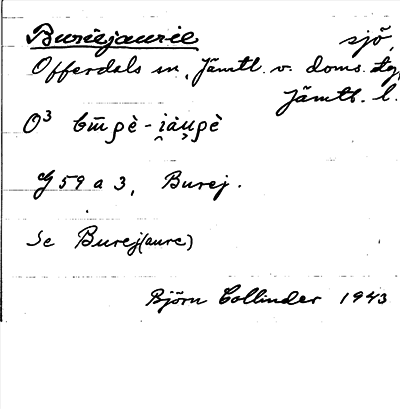 Buriejaurie sjö,
Offerdals sn, Jämtl. v. doms. tg,
Jämtl. l.
O³
G 59 a 3, Burej.
Se Burej(aure)
Björn Collinder 1943